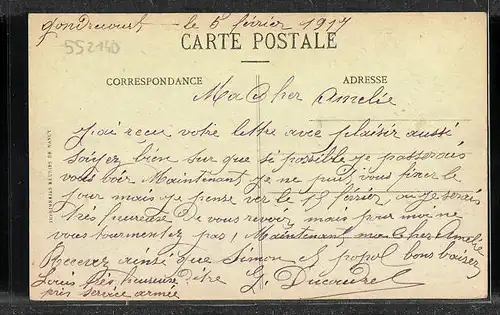 Gondrecourt le 5 février 1917
552140
CARTE POSTALE
CORRESPONDANCE
ADRESSE
Ma Cher Amelie
J'ai recu votre lettre avec plaisir aussi
soiyez bien sur que si possible je passerais
vous voir Maintenant je ne puis vous fixer le
jour mais je pense ver le 15 février ou je serais
très heureuse de vous revoir mais pour moi ne
vous tourmentez pas, Maintenant ma cher Amelie
Recevez ainsi que Simon et popol bons baisers
Louis très heureuse d'être G. Ducoudret
près service armée
IMPRIMERIES REUNIES DE NANCY